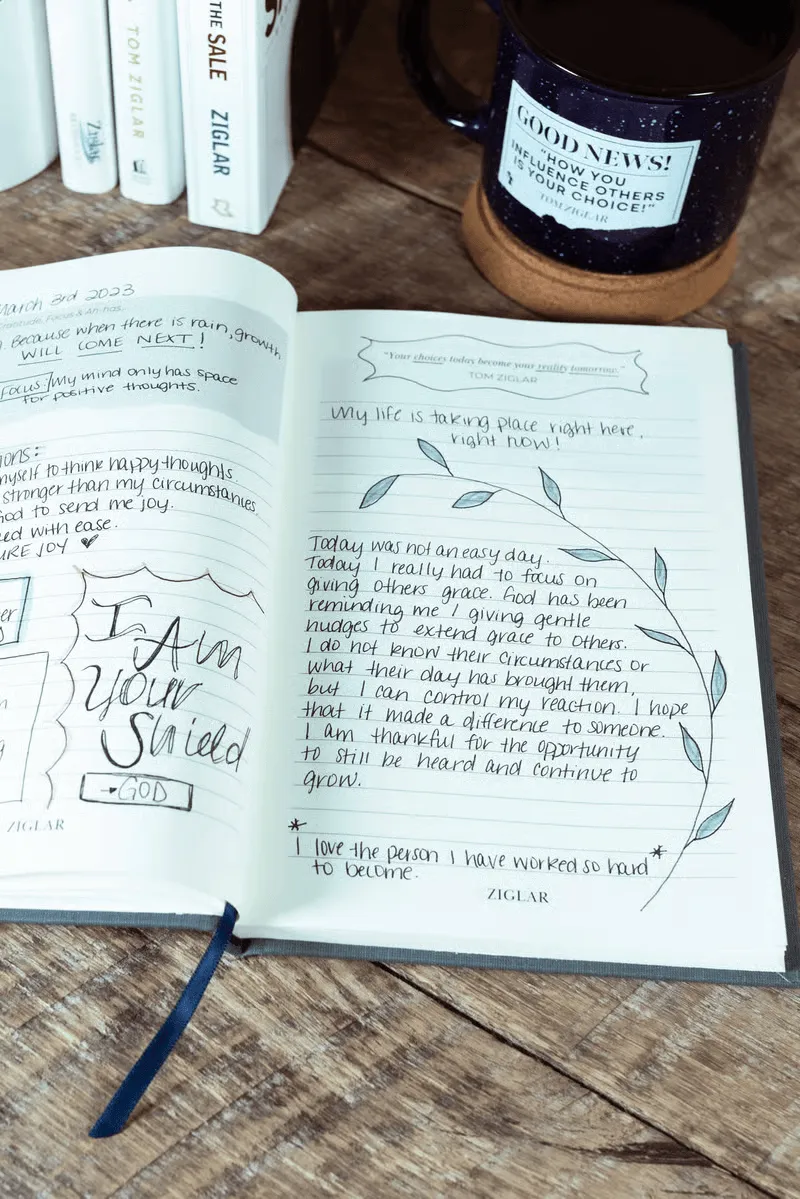 Ziglar
TOM ZIGLAR
THE SALE ZIGLAR
GOOD NEWS!
"HOW YOU
INFLUENCE OTHERS
IS YOUR CHOICE!"
TOM ZIGLAR
March 3rd 2023
Gratitude, Focus & Affirmations
Because when there is rain, growth
WILL COME NEXT!
Focus: My mind only has space
for positive thoughts.
myself to think happy thoughts.
stronger than my circumstances.
God to send me joy.
with ease.
JOY ♥
I Am
Your
Shield
→GOD
ZIGLAR
"Your choices today become your reality tomorrow."
TOM ZIGLAR
My life is taking place right here,
right now!
Today was not an easy day.
Today I really had to focus on
giving others grace. God has been
reminding me / giving gentle
nudges to extend grace to others.
I do not know their circumstances or
what their day has brought them,
but I can control my reaction. I hope
that it made a difference to someone.
I am thankful for the opportunity
to still be heard and continue to
grow.
*
I love the person I have worked so hard*
to become.
ZIGLAR